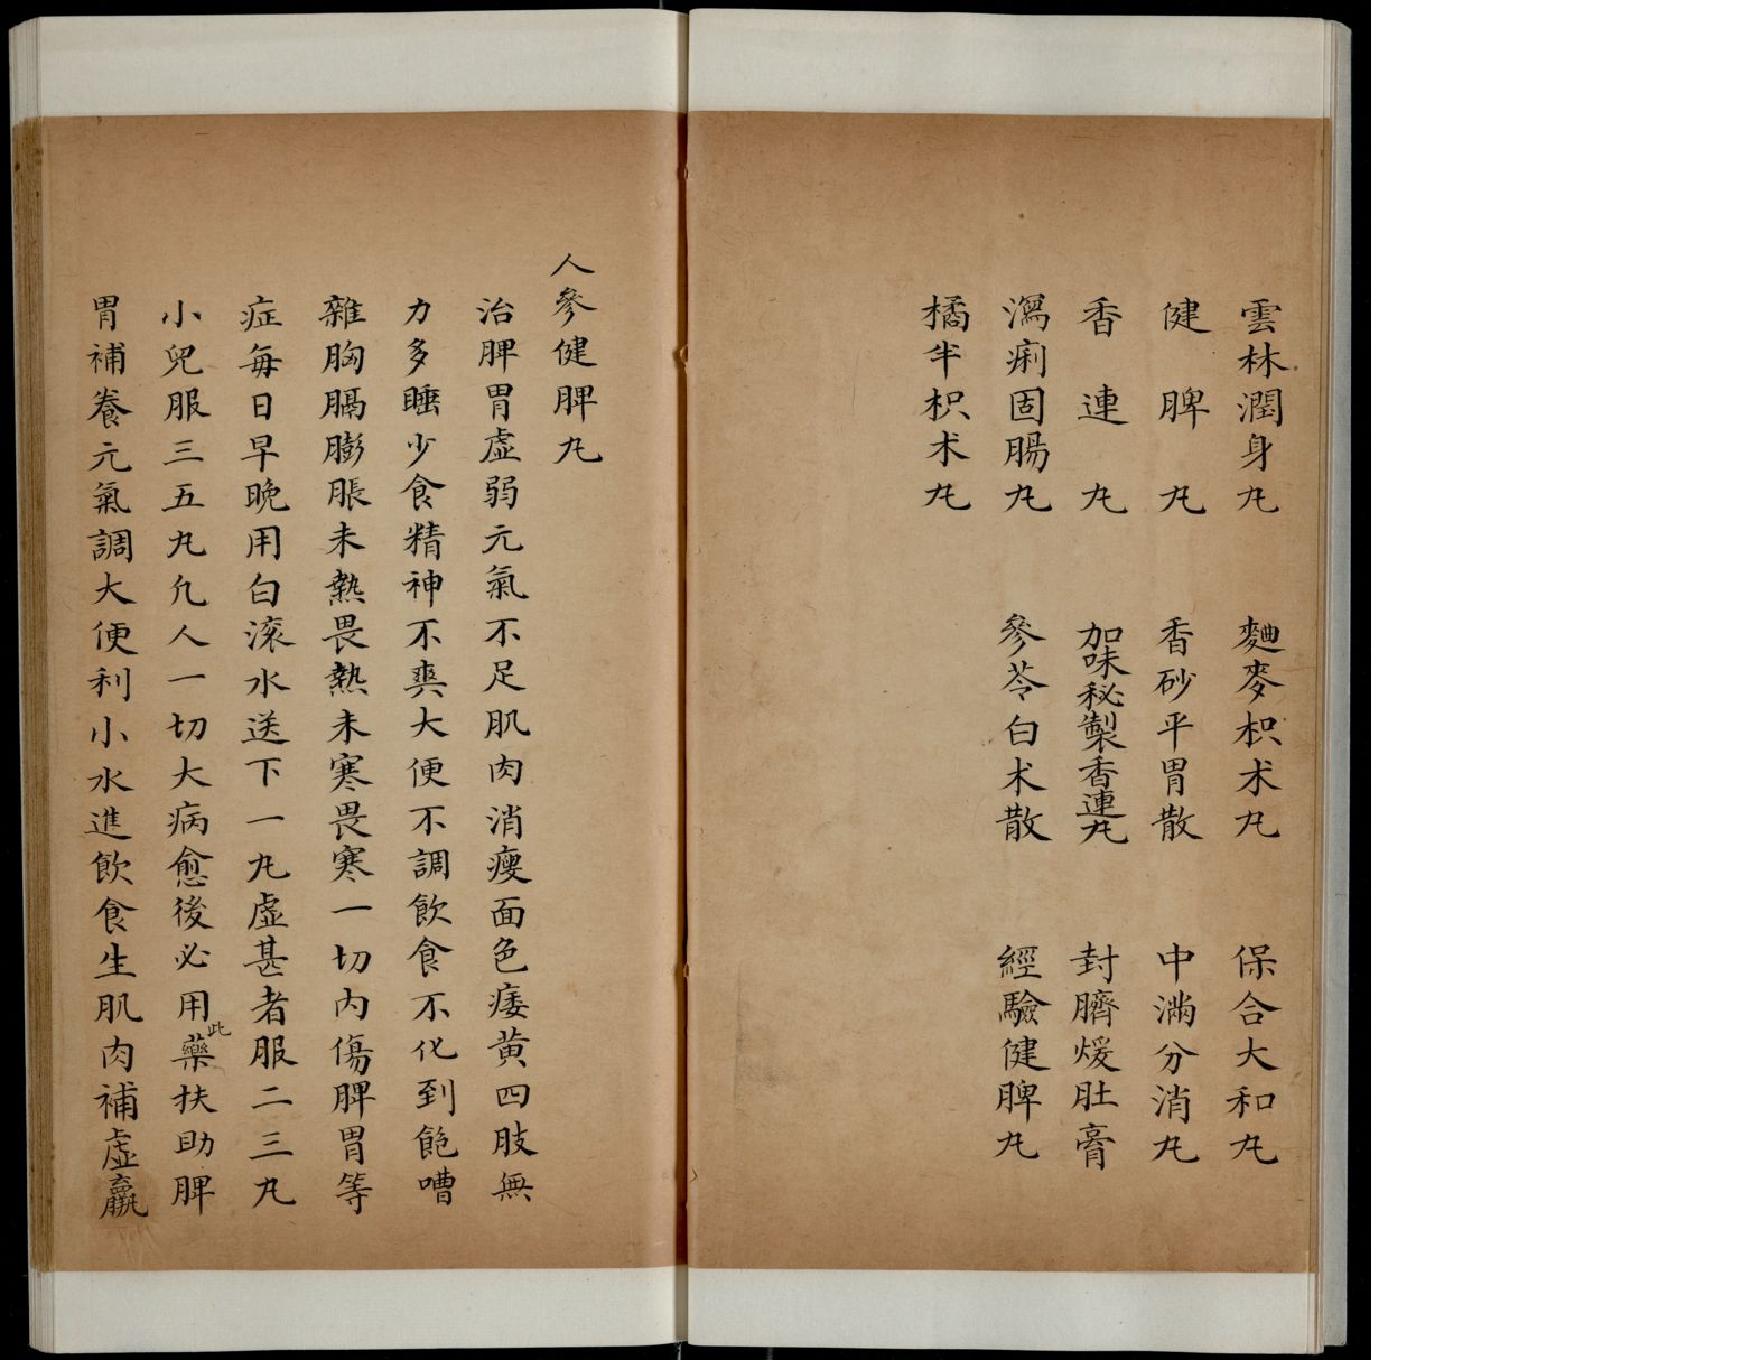 雲林潤身丸　麯麥枳术丸　保合大和丸
健脾丸　香砂平胃散　中滿分消丸
香連丸　加味秘製香連丸　封臍煖肚膏
瀉痢固腸丸　參苓白术散　經驗健脾丸
橘半枳术丸
人參健脾丸
治脾胃虛弱元氣不足肌肉消瘦面色痿黃四肢無
力多睡少食精神不爽大便不調飲食不化到飽嘈
雜胸膈膨脹未熱畏熱未寒畏寒一切內傷脾胃等
症每日早晚用白滚水送下一丸虛甚者服二三丸
小兒服三五丸凢人一切大病愈後必用此藥扶助脾
胃補養元氣調大便利小水進飲食生肌肉補虛羸